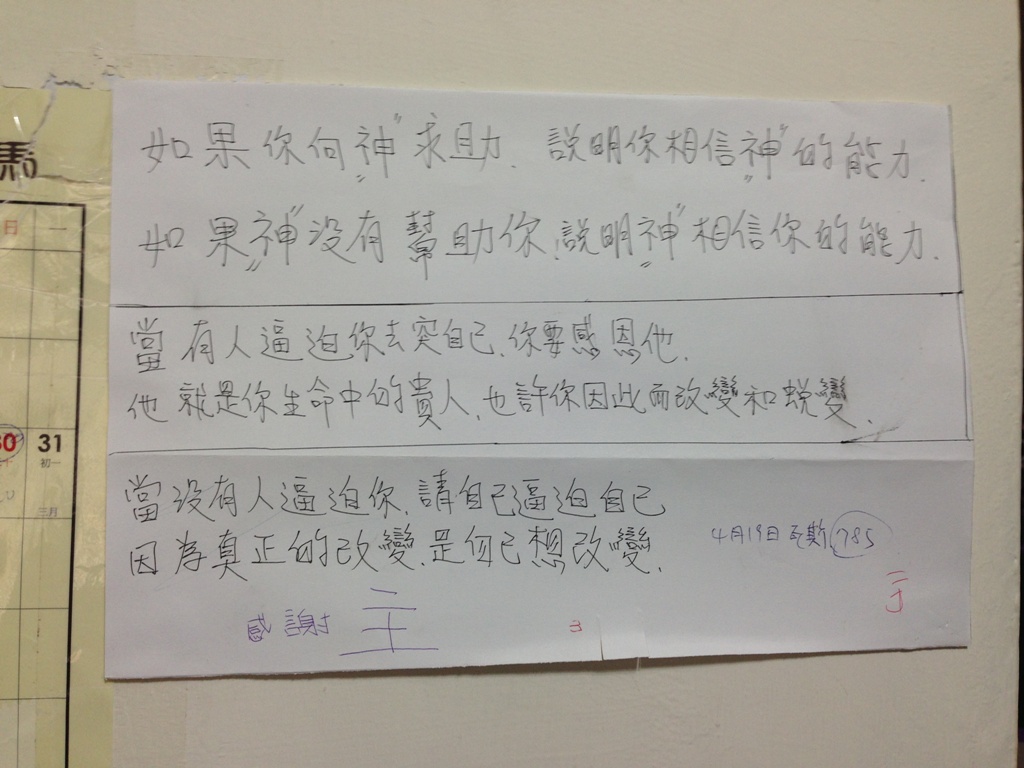 如果你向"神"求助、說明你相信"神"的能力.
如果"神"沒有幫助你、說明"神"相信你的能力.
當有人逼迫你去突自己、你要感恩他.
他就是你生命中的貴人、也許你因此而改變和蛻變.
當沒有人逼迫你、請自己逼迫自己
因為真正的改變、是自己想改變.
4月19日瓦斯 785
感謝主
3
日 一
30 31
初一
三月